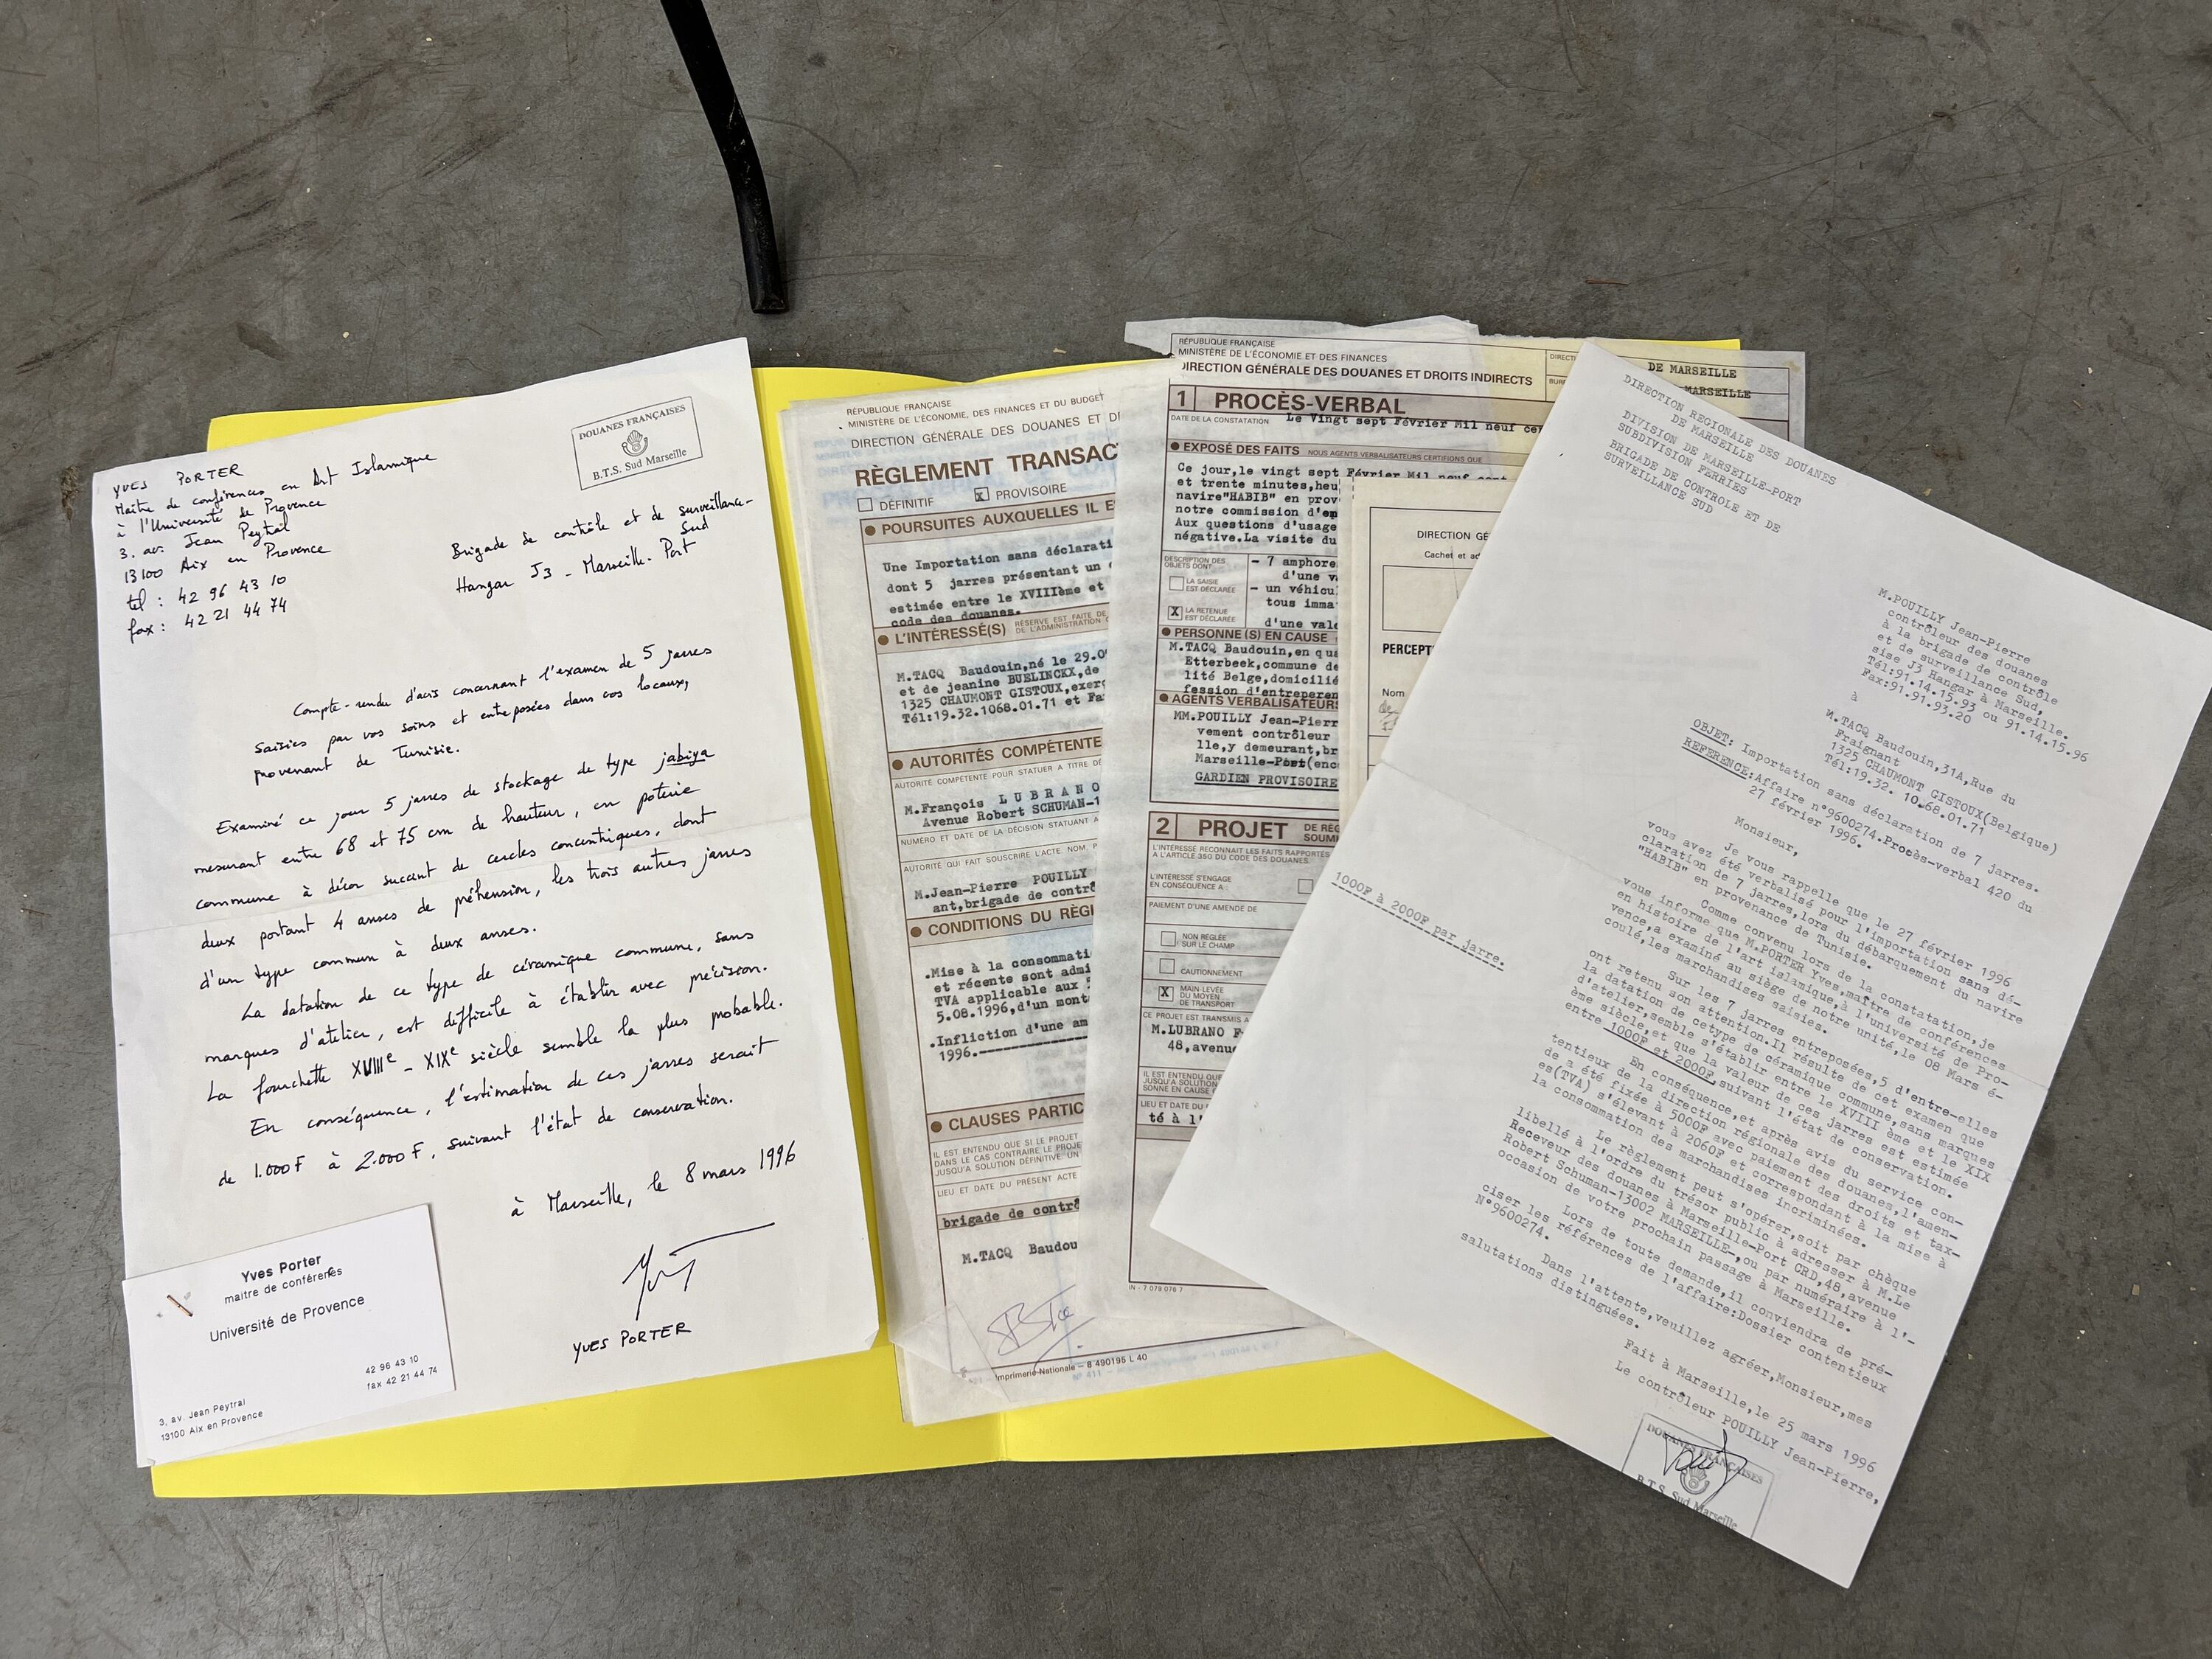 YVES PORTER
Maître de conférences en Art Islamique
à l'Université de Provence
3. av. Jean Peytral
13100 Aix en Provence
tel : 42 96 43 10
fax : 42 21 44 74
DOUANES FRANÇAISES
B.T.S. Sud Marseille
Brigade de contrôle et de surveillance-
Sud
Hangar J3 - Marseille-Port
Compte-rendu d'avis concernant l'examen de 5 jarres
saisies par vos soins et entreposées dans vos locaux,
provenant de Tunisie.
Examiné ce jour 5 jarres de stockage de type jabiya
mesurant entre 68 et 75 cm de hauteur, en poterie
commune à décor succint de cercles concentriques, dont
deux portant 4 anses de préhension, les trois autres jarres
d'un type commun à deux anses.
La datation de ce type de céramique commune, sans
marques d'atelier, est difficile à établir avec précision.
La fourchette XVIIIe - XIXe siècle semble la plus probable.
En conséquence, l'estimation de ces jarres serait
de 1.000F à 2.000F, suivant l'état de conservation.
à Marseille, le 8 mars 1996
YVES PORTER
Yves Porter
maitre de conférences
Université de Provence
42 96 43 10
fax 42 21 44 74
3, av. Jean Peytral
13100 Aix en Provence
RÉPUBLIQUE FRANÇAISE
MINISTÈRE DE L'ÉCONOMIE, DES FINANCES ET DU BUDGET
DIRECTION GÉNÉRALE DES DOUANES ET D
RÈGLEMENT TRANSAC
DÉFINITIF X PROVISOIRE
POURSUITES AUXQUELLES IL E
Une Importation sans déclarati
dont 5 jarres présentant un
estimée entre le XVIIIème et
code des douanes.
L'INTÉRESSÉ(S) RÉSERVE EST FAITE DE
DE L'ADMINISTRATION
M.TACQ Baudouin,né le 29.0
et de jeanine BUELINCKX,de
1325 CHAUMONT GISTOUX,exer
Tél:19.32.1068.01.71 et Fa
AUTORITÉS COMPÉTENTE
AUTORITÉ COMPÉTENTE POUR STATUER A TITRE DE
M.François LUBRANO
Avenue Robert SCHUMAN-1
NUMÉRO ET DATE DE LA DÉCISION STATUANT A
AUTORITÉ QUI FAIT SOUSCRIRE L'ACTE. NOM, P
M.Jean-Pierre POUILLY
ant,brigade de contrô
CONDITIONS DU RÈGL
.Mise à la consommati
et récente sont admi
TVA applicable aux 5
5.08.1996,d'un mont
.Infliction d'une am
1996.
CLAUSES PARTIC
IL EST ENTENDU QUE SI LE PROJET
DANS LE CAS CONTRAIRE LE PROJE
JUSQU'A SOLUTION DÉFINITIVE. UN
LIEU ET DATE DU PRÉSENT ACTE
brigade de contrô
M.TACQ Baudou
Imprimerie Nationale — 8 490195 L 40
RÉPUBLIQUE FRANÇAISE
MINISTÈRE DE L'ÉCONOMIE ET DES FINANCES
DIRECTION GÉNÉRALE DES DOUANES ET DROITS INDIRECTS
DIRECTI
BUR
DE MARSEILLE
MARSEILLE
1 PROCÈS-VERBAL
DATE DE LA CONSTATATION Le Vingt sept Février Mil neuf cen
EXPOSÉ DES FAITS NOUS AGENTS VERBALISATEURS CERTIFIONS QUE
Ce jour,le vingt sept Février Mil neuf cent
et trente minutes,heu
navire"HABIB" en prov
notre commission d'em
Aux questions d'usage
négative.La visite du
DESCRIPTION DES
OBJETS DONT
LA SAISIE
EST DÉCLARÉE
X LA RETENUE
EST DÉCLARÉE
- 7 amphore
d'une va
- un véhicu
tous imma
d'une vale
PERSONNE (S) EN CAUSE
M.TACQ Baudouin,en qua
Etterbeek,commune de
lité Belge,domicilié
fession d'entrepren
AGENTS VERBALISATEURS
MM.POUILLY Jean-Pierr
vement contrôleur
lle,y demeurant,br
Marseille-Port(enc
GARDIEN PROVISOIRE
2 PROJET DE RÉG
SOUM
L'INTÉRESSÉ RECONNAIT LES FAITS RAPPORTÉS
A L'ARTICLE 350 DU CODE DES DOUANES.
L'INTÉRESSÉ S'ENGAGE
EN CONSÉQUENCE A :
PAIEMENT D'UNE AMENDE DE
NON RÉGLÉE
SUR LE CHAMP
CAUTIONNEMENT
X MAIN-LEVÉE
DU MOYEN
DE TRANSPORT
CE PROJET EST TRANSMIS A
M.LUBRANO F
48,avenu
IL EST ENTENDU QUE
JUSQU'A SOLUTION
SONNE EN CAUSE
LIEU ET DATE DU
té à l'
IN - 7 078 076 7
DIRECTION GÉ
Cachet et ad
PERCEPT
Nom
DIRECTION REGIONALE DES DOUANES
DE MARSEILLE
DIVISION DE MARSEILLE-PORT
SUBDIVISION FERRIES
BRIGADE DE CONTROLE ET DE
SURVEILLANCE SUD
M.POUILLY Jean-Pierre
contrôleur des douanes
à la brigade de contrôle
et de surveillance Sud,
sise J3 Hangar à Marseille.
Tél:91.14.15.93 ou 91.14.15.96
Fax:91.91.93.20
à
M.TACQ Baudouin,31A,Rue du
Fraignant
1325 CHAUMONT GISTOUX(Belgique)
Tél:19.32. 10.68.01.71
OBJET: Importation sans déclaration de 7 jarres.
REFERENCE:Affaire n°9600274.Procès-verbal 420 du
27 février 1996.
Monsieur,
Je vous rappelle que le 27 février 1996
vous avez été verbalisé pour l'importation sans dé-
claration de 7 jarres,lors du débarquement du navire
"HABIB" en provenance de Tunisie.
Comme convenu lors de la constatation,je
vous informe que M.PORTER Yves,maître de conférences
en histoire de l'art islamique,à l'université de Pro-
vence,a examiné au siège de notre unité,le 08 Mars é-
coulé,les marchandises saisies.
Sur les 7 jarres entreposées,5 d'entre-elles
ont retenu son attention.Il résulte de cet examen que
la datation de cetype de céramique commune,sans marques
d'atelier,semble s'établir entre le XVIII ème et le XIX
ème siècle,et que la valeur de ces jarres est estimée
entre 1000F et 2000F,suivant l'état de conservation.
1000F à 2000F par jarre.
En conséquence,et après avis du service con-
tentieux de la direction régionale des douanes,l'amen-
de a été fixée à 5000F avec paiement des droits et tax-
es(TVA) s'élevant à 2060F et correspondant à la mise à
la consommation des marchandises incriminées.
Le règlement peut s'opérer,soit par chèque
libellé à l'ordre du trésor public à adresser à M.Le
Receveur des douanes à Marseille-Port CRD,48,avenue
Robert Schuman-13002 MARSEILLE-,ou par numéraire à l'-
occasion de votre prochain passage à Marseille.
Lors de toute demande,il conviendra de pré-
ciser les références de l'affaire:Dossier contentieux
N°9600274.
Dans l'attente,veuillez agréer,Monsieur,mes
salutations distinguées.
Fait à Marseille,le 25 mars 1996
Le contrôleur POUILLY Jean-Pierre,
DOUANES FRANÇAISES
B.T.S. Sud Marseille